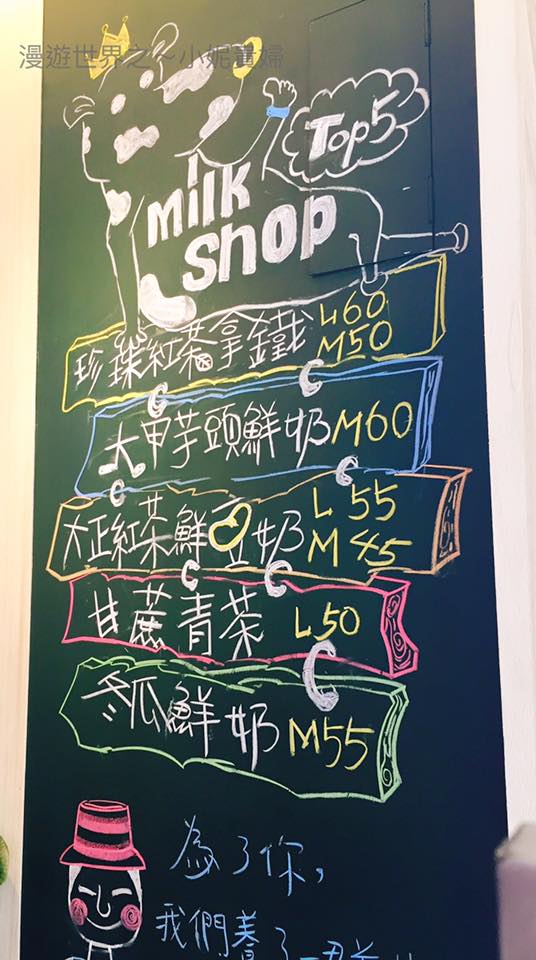 漫遊世界之～小妮貴婦
Top5
milk
shop
珍珠紅茶拿鐵 L60
M50
大甲芋頭鮮奶 M60
大正紅茶鮮豆奶 L 55
M 45
甘蔗青茶 L50
冬瓜鮮奶 M55
為了你,
我們養了一